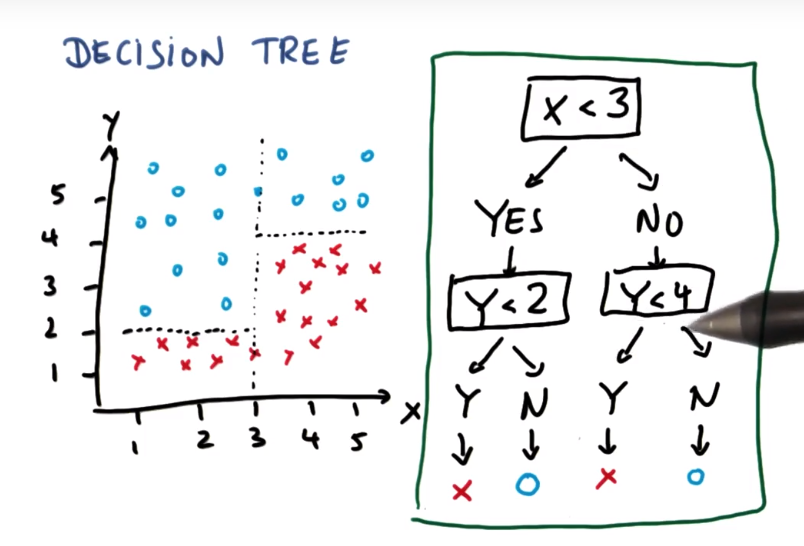 DECISION TREE
Y
5
4
3
2
1
1 2 3 4 5
X
X < 3
YES NO
Y < 2 Y < 4
Y N Y N
x o x o